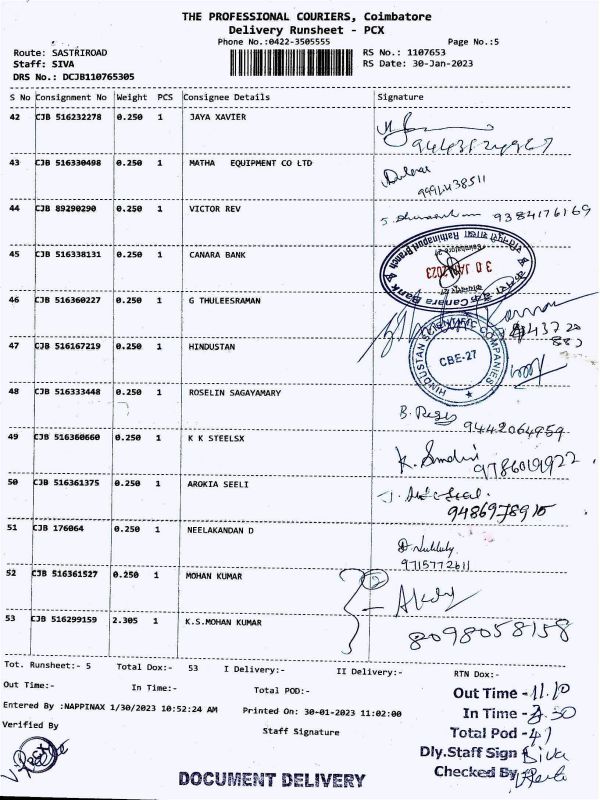 THE PROFESSIONAL COURIERS, Coimbatore
Delivery Runsheet - PCX
Phone No.:0422-3505555
Page No.:5
Route: SASTRIROAD
RS No.: 1107653
Staff: SIVA
RS Date: 30-Jan-2023
DRS No.: DCJB110765305
S No Consignment No Weight PCS Consignee Details Signature
42 CJB 516232278 0.250 1 JAYA XAVIER
43 CJB 516330498 0.250 1 MATHA EQUIPMENT CO LTD
9994438511
44 CJB 89290290 0.250 1 VICTOR REV
9384176169
45 CJB 516338131 0.250 1 CANARA BANK
Canara Bank
Rathinapuri Branch
30 JAN 2023
46 CJB 516360227 0.250 1 G THULEESRAMAN
47 CJB 516167219 0.250 1 HINDUSTAN
HINDUSTAN COMPANIES
CBE-27
48 CJB 516333448 0.250 1 ROSELIN SAGAYAMARY
9442064959
49 CJB 516360660 0.250 1 K K STEELSX
9786019922
50 CJB 516361375 0.250 1 AROKIA SEELI
9486978910
51 CJB 176064 0.250 1 NEELAKANDAN D
9715772611
52 CJB 516361527 0.250 1 MOHAN KUMAR
2
53 CJB 516299159 2.305 1 K.S.MOHAN KUMAR
8098058158
Tot. Runsheet:- 5 Total Dox:- 53 I Delivery:- II Delivery:- RTN Dox:-
Out Time:- In Time:- Total POD:-
Out Time - 11.10
Entered By :NAPPINAX 1/30/2023 10:52:24 AM Printed On: 30-01-2023 11:02:00
In Time - .30
Verified By
Staff Signature
Total Pod - 41
Dly.Staff Sign Siva
Checked By
DOCUMENT DELIVERY